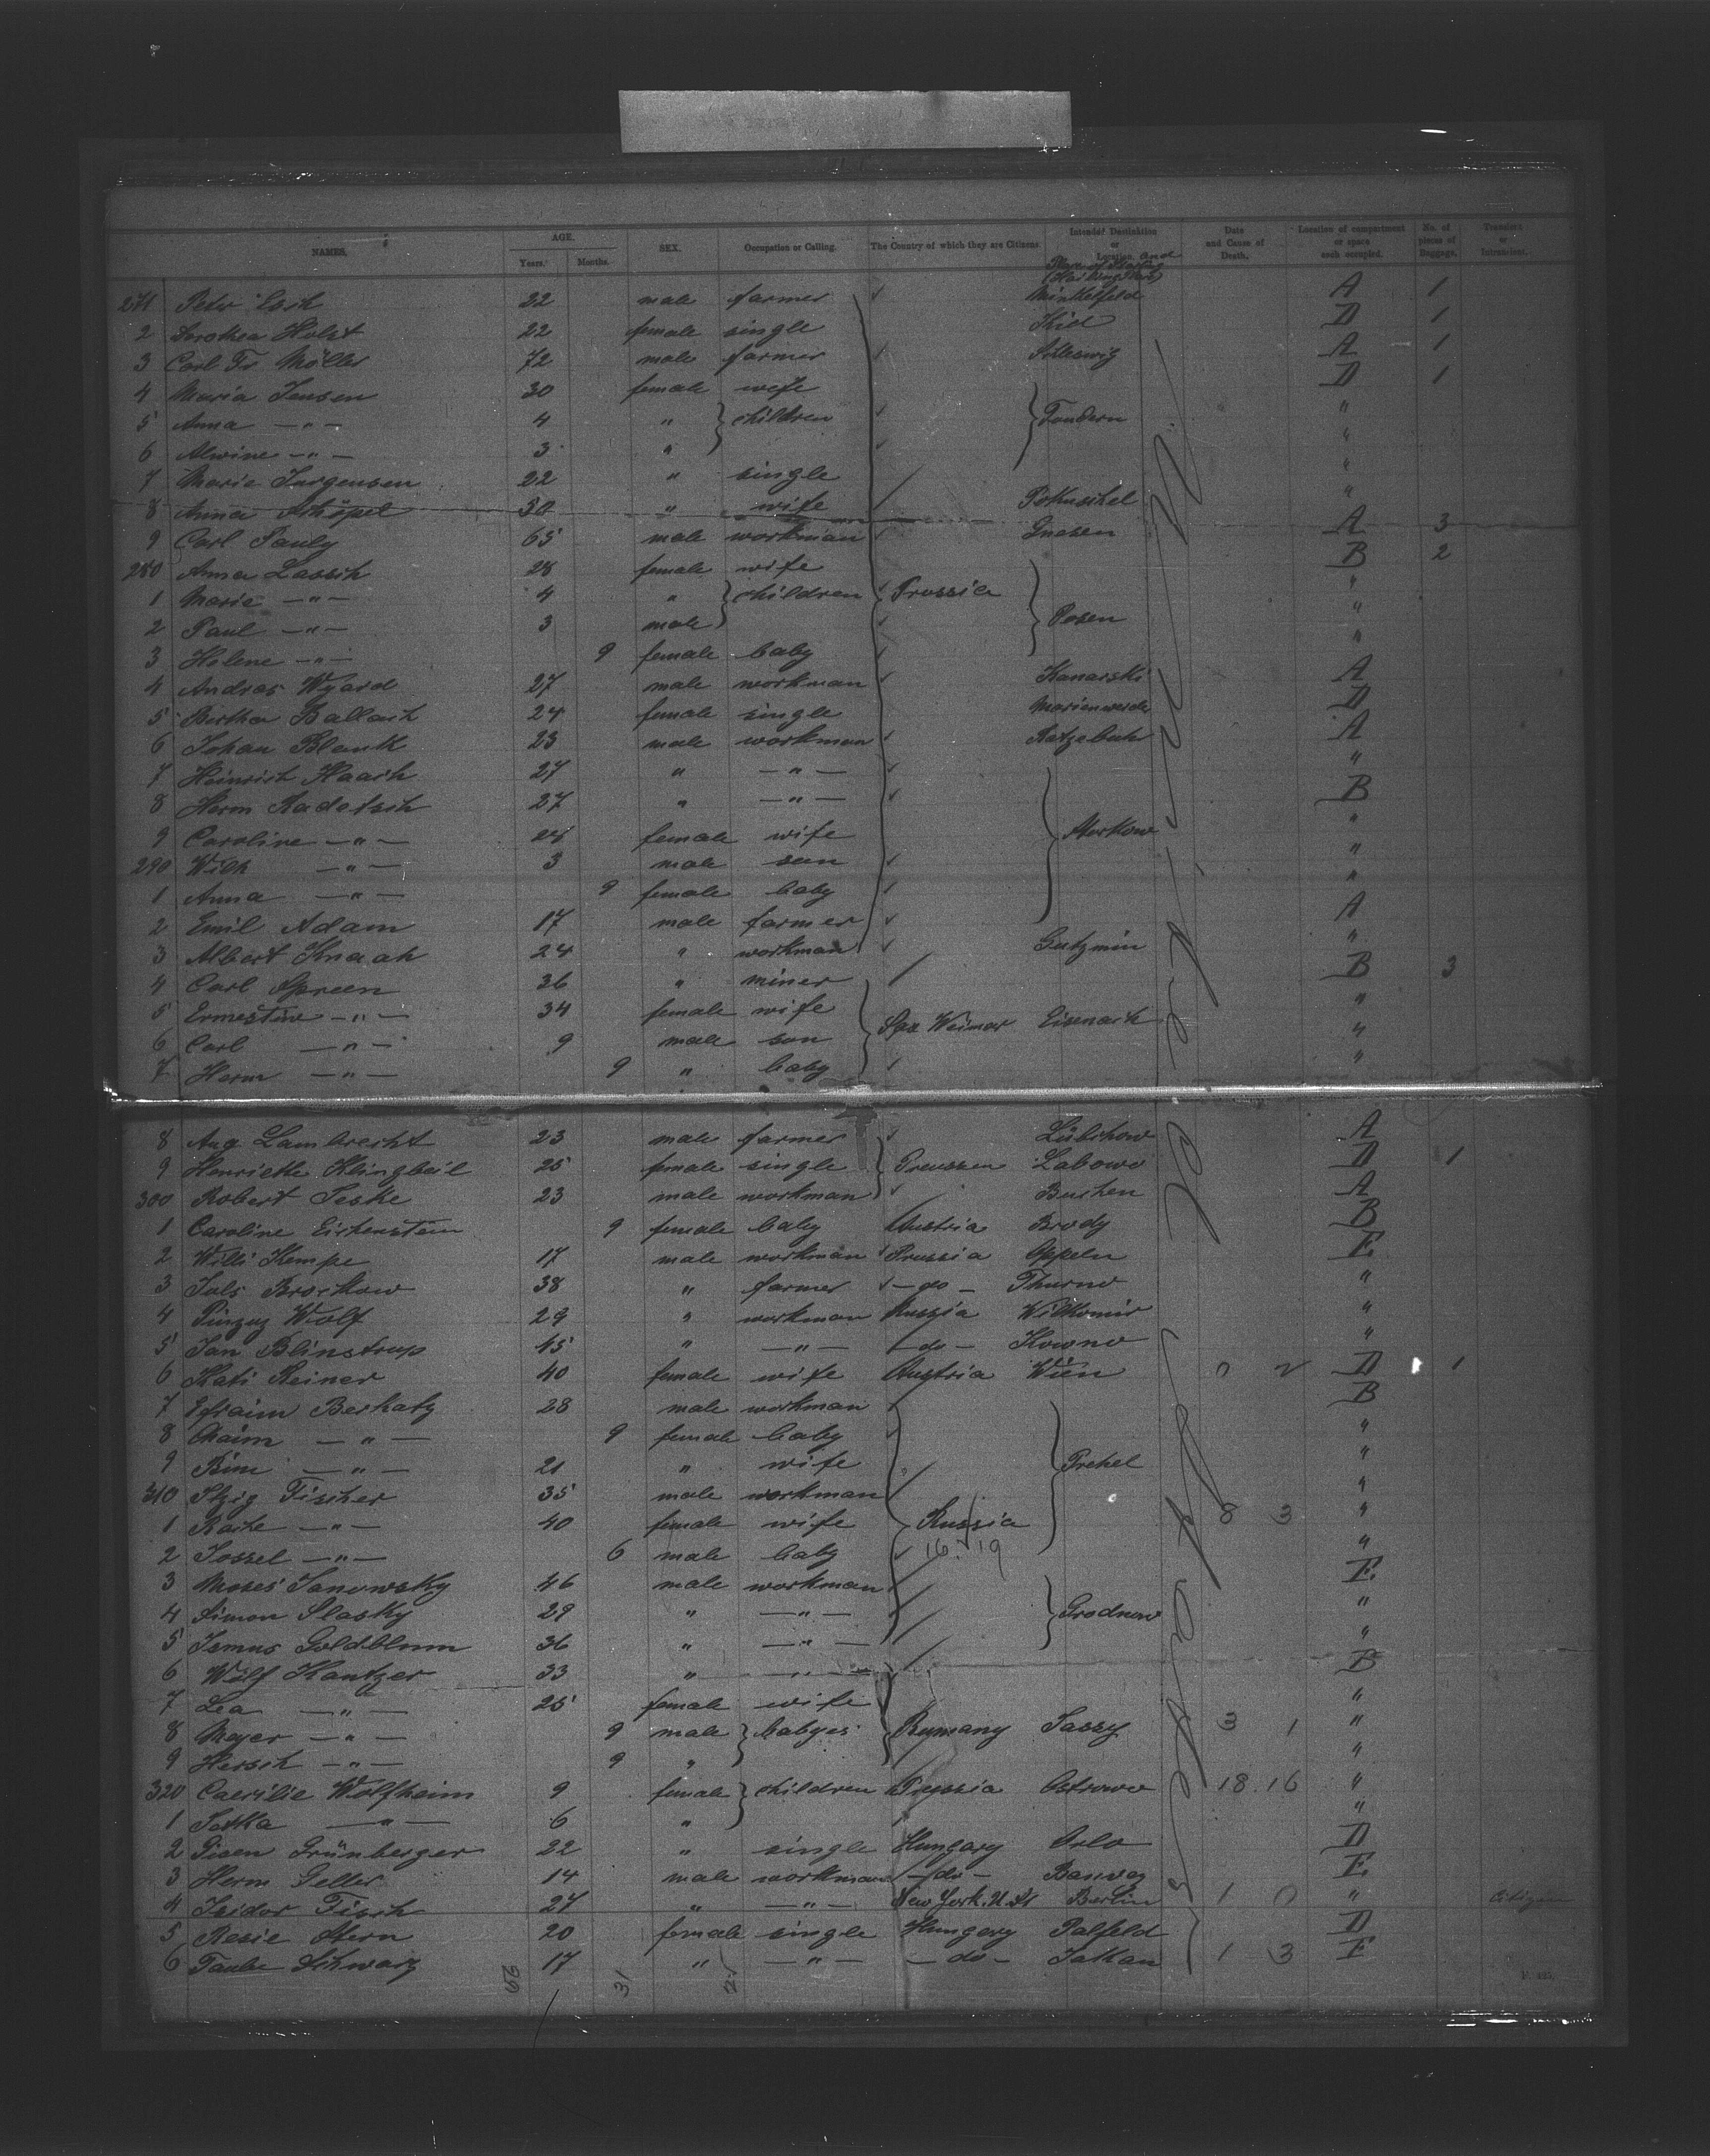 NAMES. AGE. Years. Months. SEX. Occupation or Calling. The Country of which they are Citizens. Intended Destination or Location. and Date and Cause of Death. Location of compartment or space each occupied. No. of pieces of Baggage. Transient or Intransient.
271 Peter 22 male farmer A 1
2 Dorothea Holst 22 female single Kiel D 1
3 Carl Fr Möller 72 male farmer Schleswig A 1
4 Maria Jensen 30 female wife D 1
5 Anna —"— 4 " children Tondern "
6 Alwine —"— 3 " "
7 Marie Jurgensen 22 " single "
8 Anna Schöpel 30 " wife "
9 Carl Pauly 65 male workman Gnesen A 3
280 Anna Lassik 28 female wife B 2
1 Marie —"— 4 " children Prussia "
2 Paul —"— 3 male Posen "
3 Helene —"— 9 female baby "
4 Andras Wyard 27 male workman Kanarski A
5 Bertha Ballach 24 female single Marienwerder D
6 Johan Blank 23 male workman Ratzebuhr A
7 Heinrich Haack 27 " —"— "
8 Herm Radatsch 27 " —"— B
9 Caroline —"— 24 female wife "
290 Wilh —"— 3 male son "
1 Anna —"— 9 female baby "
2 Emil Adam 17 male farmer A
3 Albert Knaak 24 " workman Gutzmin "
4 Carl Spreen 36 " miner B 3
5 Ernestine —"— 34 female wife Sax Weimar Eisenach "
6 Carl —"— 9 male son "
7 Herm —"— 9 " baby "
8 Aug Lambrecht 23 male farmer Lübchow A
9 Henriette Klingbeil 25 female single Preussen Labowo D 1
300 Robert Jeske 23 male workman Buchen A
1 Caroline Eichenstein 9 female baby Austria Brody B
2 Willi Kempe 17 male workman Prussia Oppeln E
3 Juls Brockow 38 " farmer —do— Thurno "
4 Pinzug Wolf 29 " workman Russia Wilkomir "
5 Jan Blinstrup 45 " —"— —do— Kowno "
6 Kati Reiner 40 female wife Austria Wien 0 2 D 1
7 Efraim Berkatz 28 male workman B
8 Chaim —"— 9 female baby "
9 Rim —"— 21 " wife Prekel "
310 Itzig Fischer 35 male workman "
1 Rache —"— 40 female wife Russia 8 3 "
2 Jossel —"— 6 male baby 16. 19 "
3 Moses Janowsky 46 male workman E
4 Simon Slasky 29 " —"— Grodnow "
5 Ismus Goldblum 36 " —"— "
6 Wolf Kantzer 33 " —"— B
7 Lea —"— 25 female wife "
8 Meyer —"— 9 male babyes Rumany Jassy 3 1 "
9 Hersch —"— 9 " "
320 Caecilie Wolfheim 9 female children Prussia Ostrowo 18. 16 "
1 Jetka —"— 6 " "
2 Grünberger 22 " single Hungary Orlo D
3 Herm Geller 14 male workman —do— E
4 Isidor Fisch 27 " —"— New York. U.St Berlin 1 0 " Citizen
5 Rosie Stern 20 female single Hungary Palfeld D
6 Taube Schwarz 17 " —"— —do— 1 3 E
31